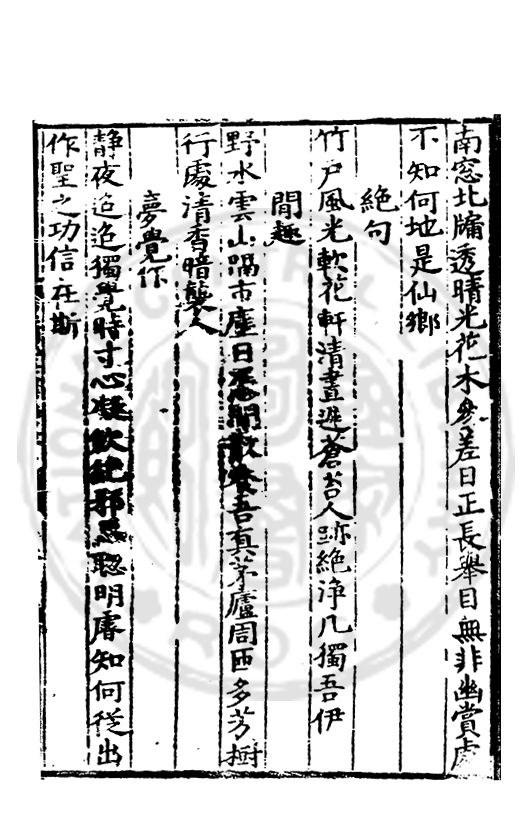 南窓北牖透晴光花木參差日正長舉目無非幽賞處
不知何地是仙鄉
絶句
竹戶風光軟花軒清晝遲蒼苔人跡絶淨几獨吾伊
閒趣
野水雲山隔市塵日長閒散養吾真茅廬周匝多芳樹
行處清香暗襲人
夢覺作
靜夜迢迢獨覺時寸心凝歛絶邪思聰明睿知何從出
作聖之功信在斯